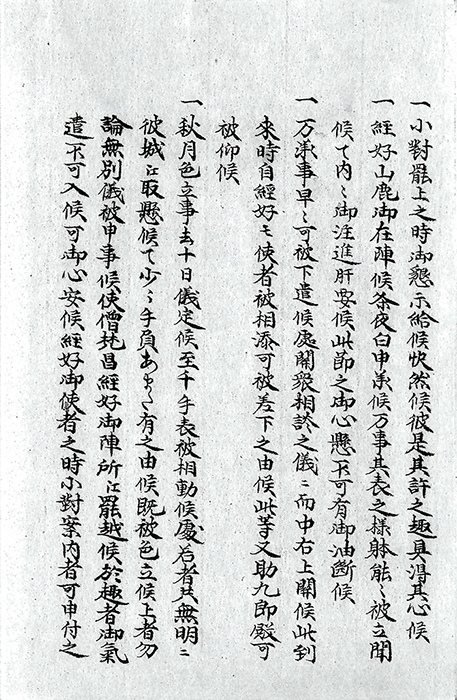 一小對罷上之時御懇示給候快然候彼是其許之趣具得其心候
一經好山鹿御在陣候条夜白申承候万事其表之様躰能〻被立聞
候て内〻御注進肝要候此節之御心懸不可有御油斷候
一万承事早〻可被下遣候處關衆相診之儀ニ而中右上關候此到
来時自經好モ使者被相添可被差下之由候此等又助九郎殿可
被仰候
一秋月色立事去十日儀定候至千手表被相動候處若者共無明ニ
彼城江取懸候て少〻手負あまた有之由候既被色立候上者勿
論無別儀被申事候使僧梵昌經好御陣所江罷越候於趣者御氣
遣不可入候可御心安候經好御使者之時小對案内者可申付之